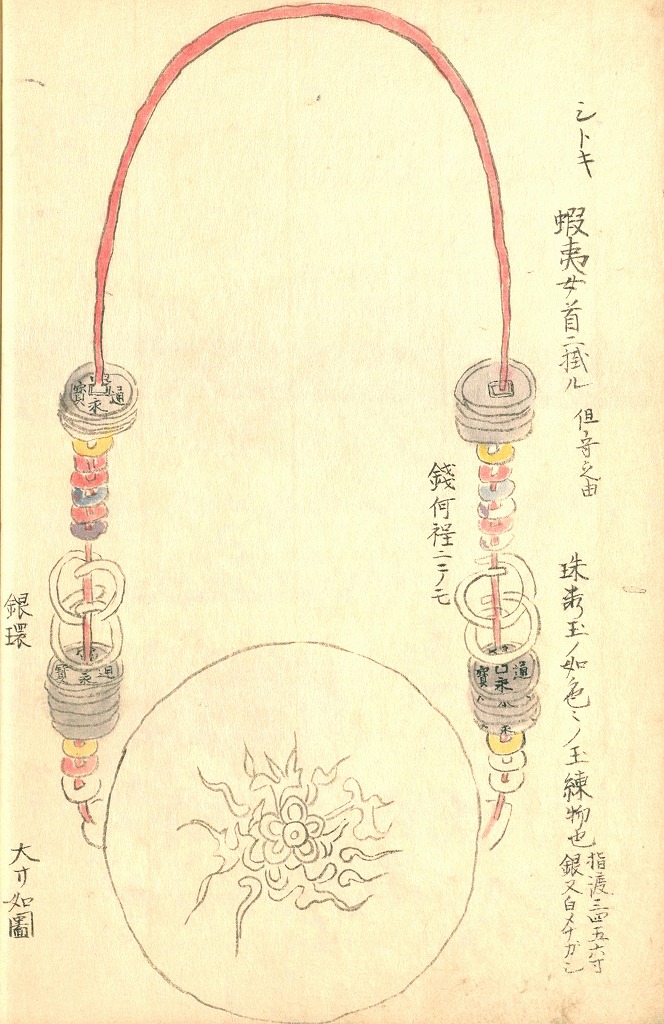 シトキ
蝦夷女首ニ掛ル
但守之由
珠数玉ノ如色ミノ玉練物也
指渡三四五六寸
銀又白メナガシ
錢何程ニテノモ
寶永通
寶永通
寶永通
銀環
大寸如圖